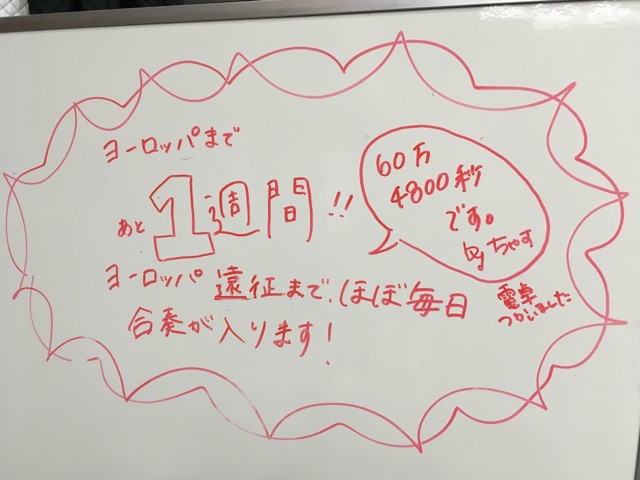 ヨーロッパまで
あと1週間!!
60万
4800秒
です。
by ちゃす
電卓
つかいました
ヨーロッパ遠征まで、ほぼ毎日
合奏が入ります!